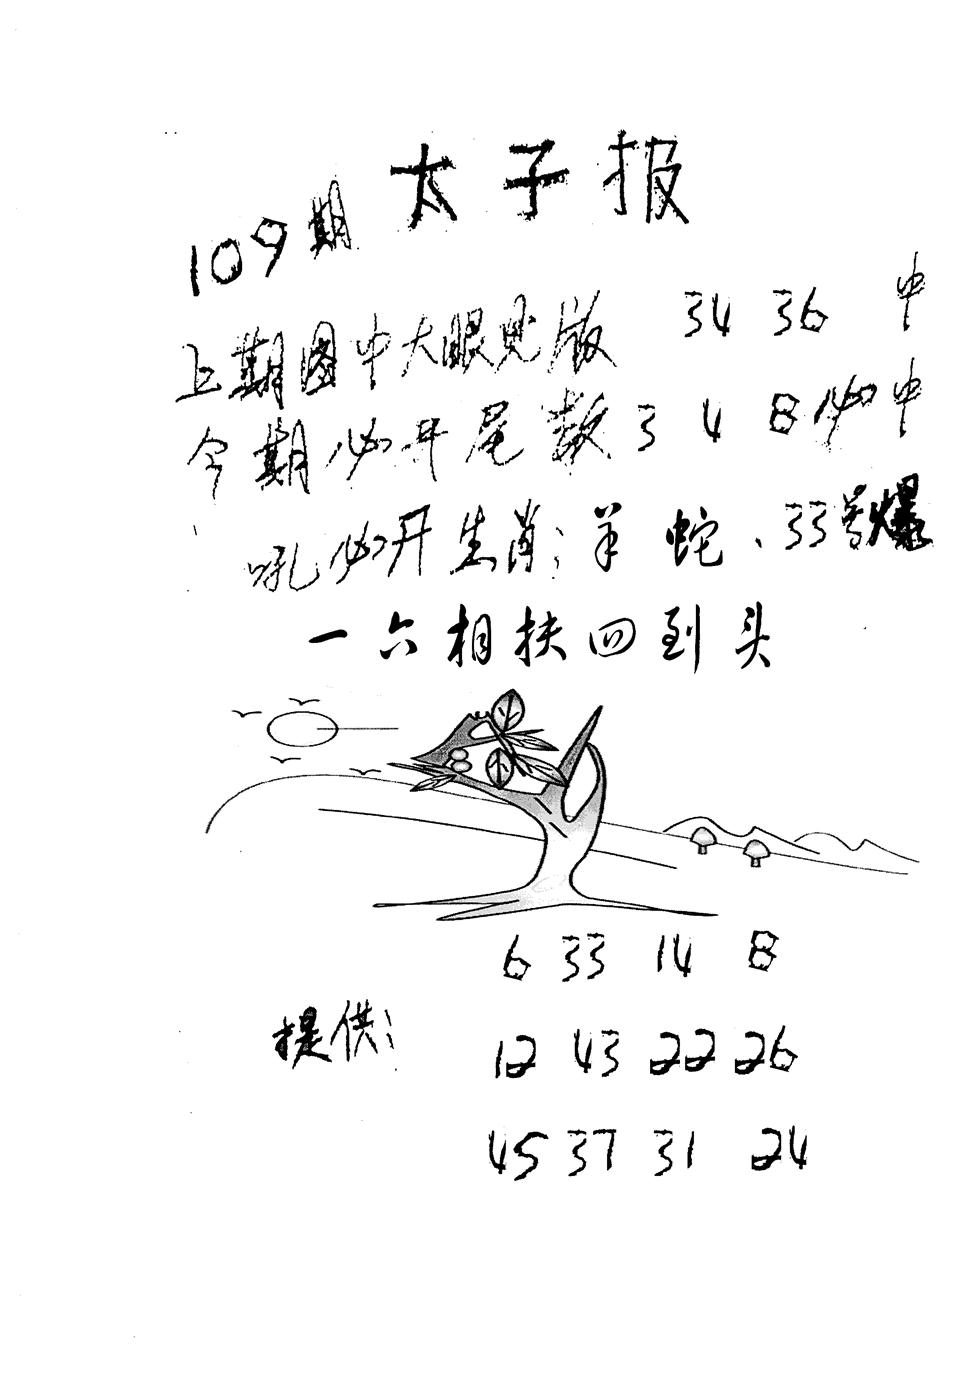 太子报
109期
上期图中大眼见版 34 36 中
今期必开尾数 3 4 8 必中
吼必开生肖:羊 蛇、33号爆
一六相扶四到头
6 33 14 8
提供:
12 43 22 26
45 37 31 24